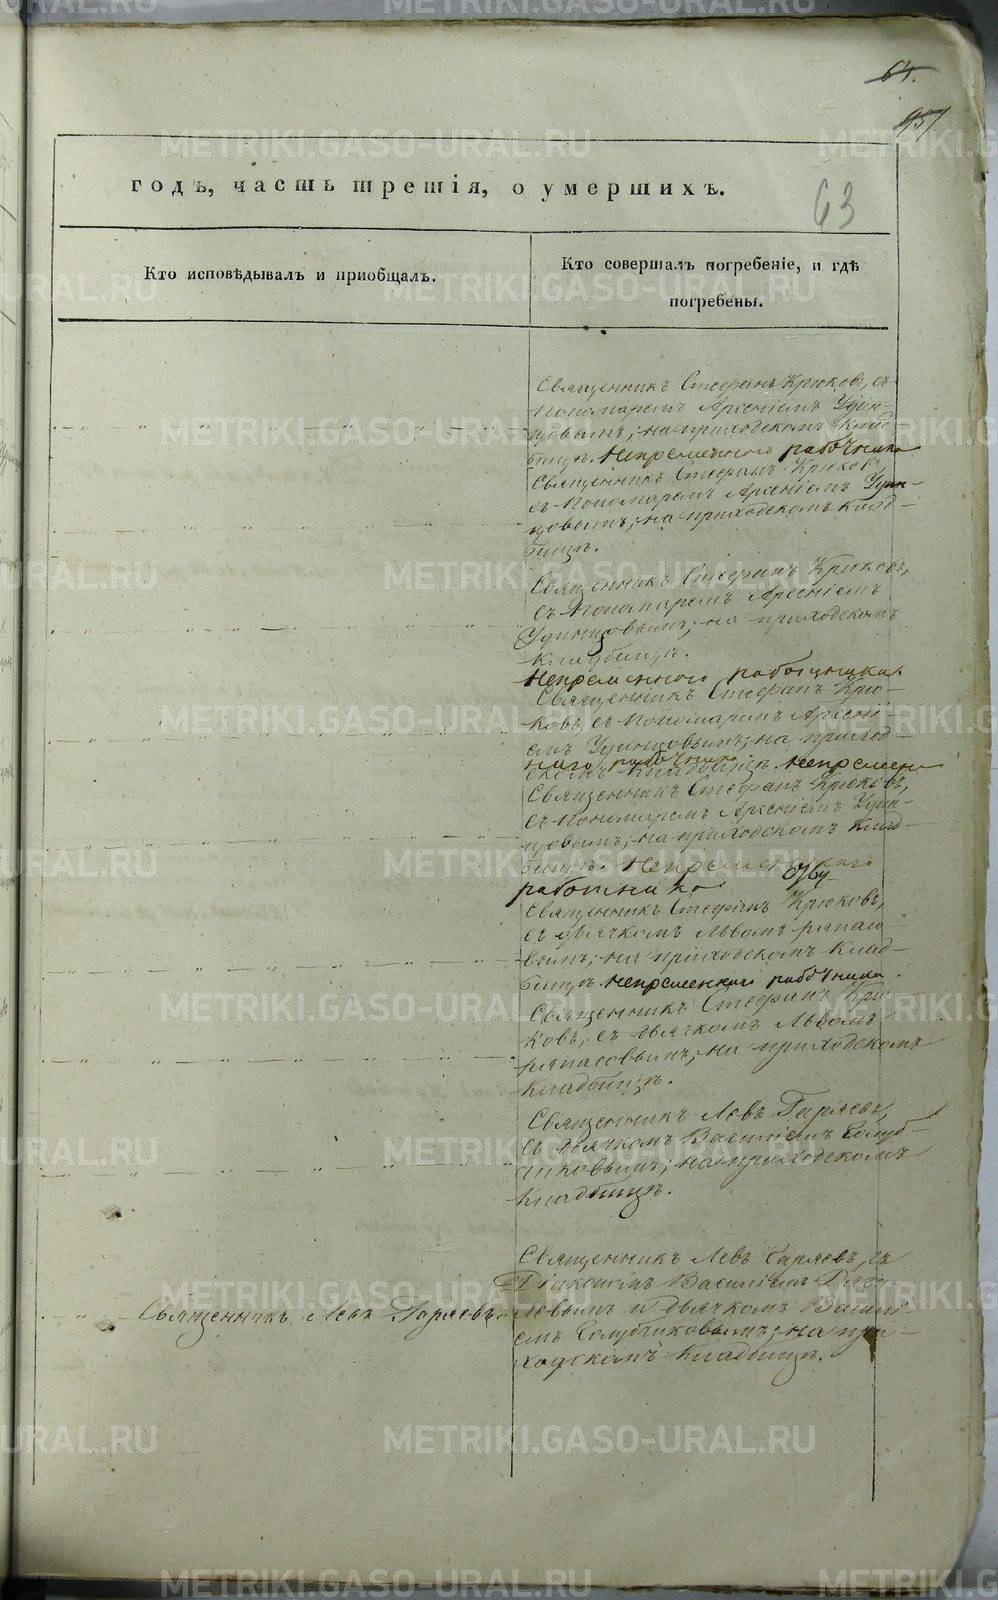 64.
957
63
годъ, часть третія, о умершихъ.
Кто исповѣдывалъ и пріобщалъ.
Кто совершалъ погребеніе, и гдѣ
погребены.
Священникъ Стефанъ Крюковъ, съ
Пономаремъ Арсеніемъ Удин-
цовымъ; на приходскомъ клад-
бищѣ. Непременного работника
Священникъ Стефанъ Крюковъ,
съ Пономаремъ Арсеніемъ Удин-
цовымъ; на приходскомъ клад-
бищѣ.
Священникъ Стефанъ Крюковъ,
съ Пономаремъ Арсеніемъ
Удинцовымъ; на приходскомъ
кладбищѣ.
Непременного работника.
Священникъ Стефанъ Крю-
ковъ, съ Пономаремъ Арсені-
емъ Удинцовымъ; на приход-
скомъ кладбищѣ. непремен
ного работника
Священникъ Стефанъ Крюковъ,
съ Пономаремъ Арсеніемъ Удин-
цовымъ; на приходскомъ клад-
бищѣ. Непременного
работника
Священникъ Стефанъ Крюковъ,
съ дьячкомъ Львомъ
на приходскомъ клад-
бищѣ. непременного работника.
Священникъ Стефанъ Крю-
ковъ, съ дьячкомъ Львомъ
на приходскомъ
кладбищѣ.
Священникъ Левъ Гаряевъ,
съ дьячкомъ Василіемъ Голуб-
чиковымъ; на приходскомъ
кладбищѣ.
Священникъ Левъ Гаряевъ
Священникъ Левъ Гаряевъ, съ
Діакономъ Василіемъ
и дьячкомъ Васили-
емъ Голубчиковымъ; на при-
ходскомъ кладбищѣ.
METRIKI.GASO-URAL.RU